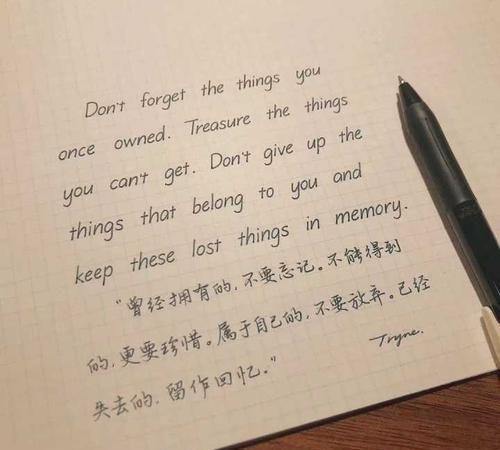 Don't forget the things you
once owned. Treasure the things
you can't get. Don't give up the
things that belong to you and
keep these lost things in memory.
“曾经拥有的,不要忘记。不能得到
的,更要珍惜。属于自己的,不要放弃。已经
失去的,留作回忆。”
Tryne.